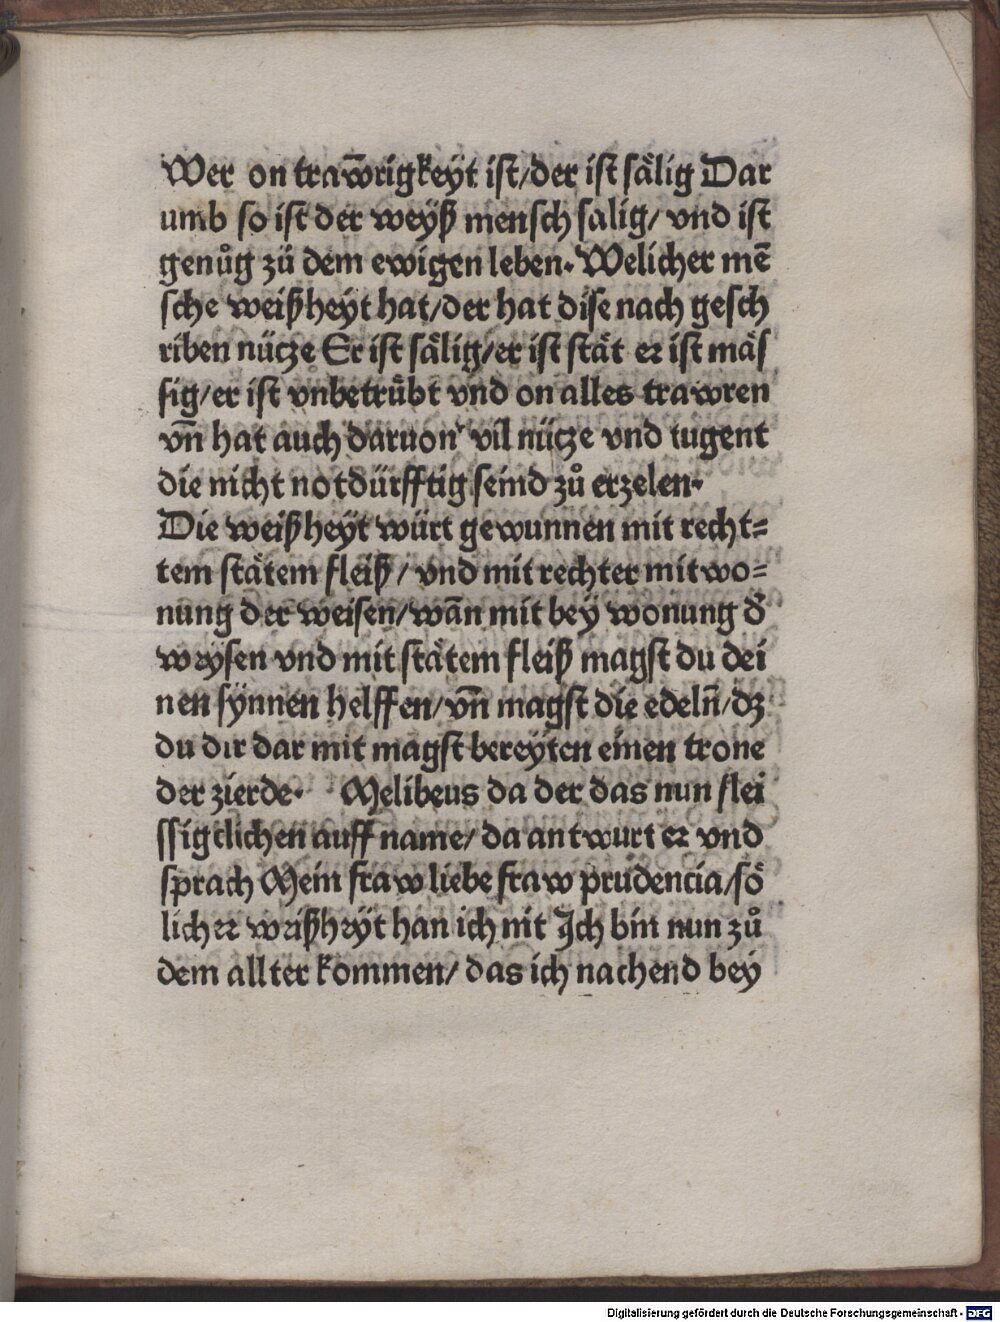 Wer on traw̄rigkeyt ist/der ist sälig Dar
umb so ist der weyß mensch salig/ vnd ist
genůg zů dem ewigen leben. Welicher mē
sche weißheyt hat/der hat dise nach gesch
riben nücze Er ist sälig/er ist stät er ist mäs
sig/er ist vnbetrübt vnd on alles trawren
vn̄ hat auch daruon vil nücze vnd tugent
die nicht notdürfftig seind zů erzelen.
Die weißheyt würt gewunnen mit recht=
tem stätem fleiß/ vnd mit rechter mitwo=
nung der weisen/wan̄ mit bey wonung d̓
weysen vnd mit stätem fleiß magst du dei
nen synnen helffen/vn̄ magst die edeln̄/dz
du dir dar mit magst bereyten einen trone
der zierde. Melibeus da der das nun flei
ssigclichen auff name/ da antwurt er vnd
sprach Mein fraw liebe fraw prudencia/sö
licher weißheyt han ich nit Ich bin nun zů
dem allter kommen/ das ich nachend bey
Digitalisierung gefördert durch die Deutsche Forschungsgemeinschaft - DFG